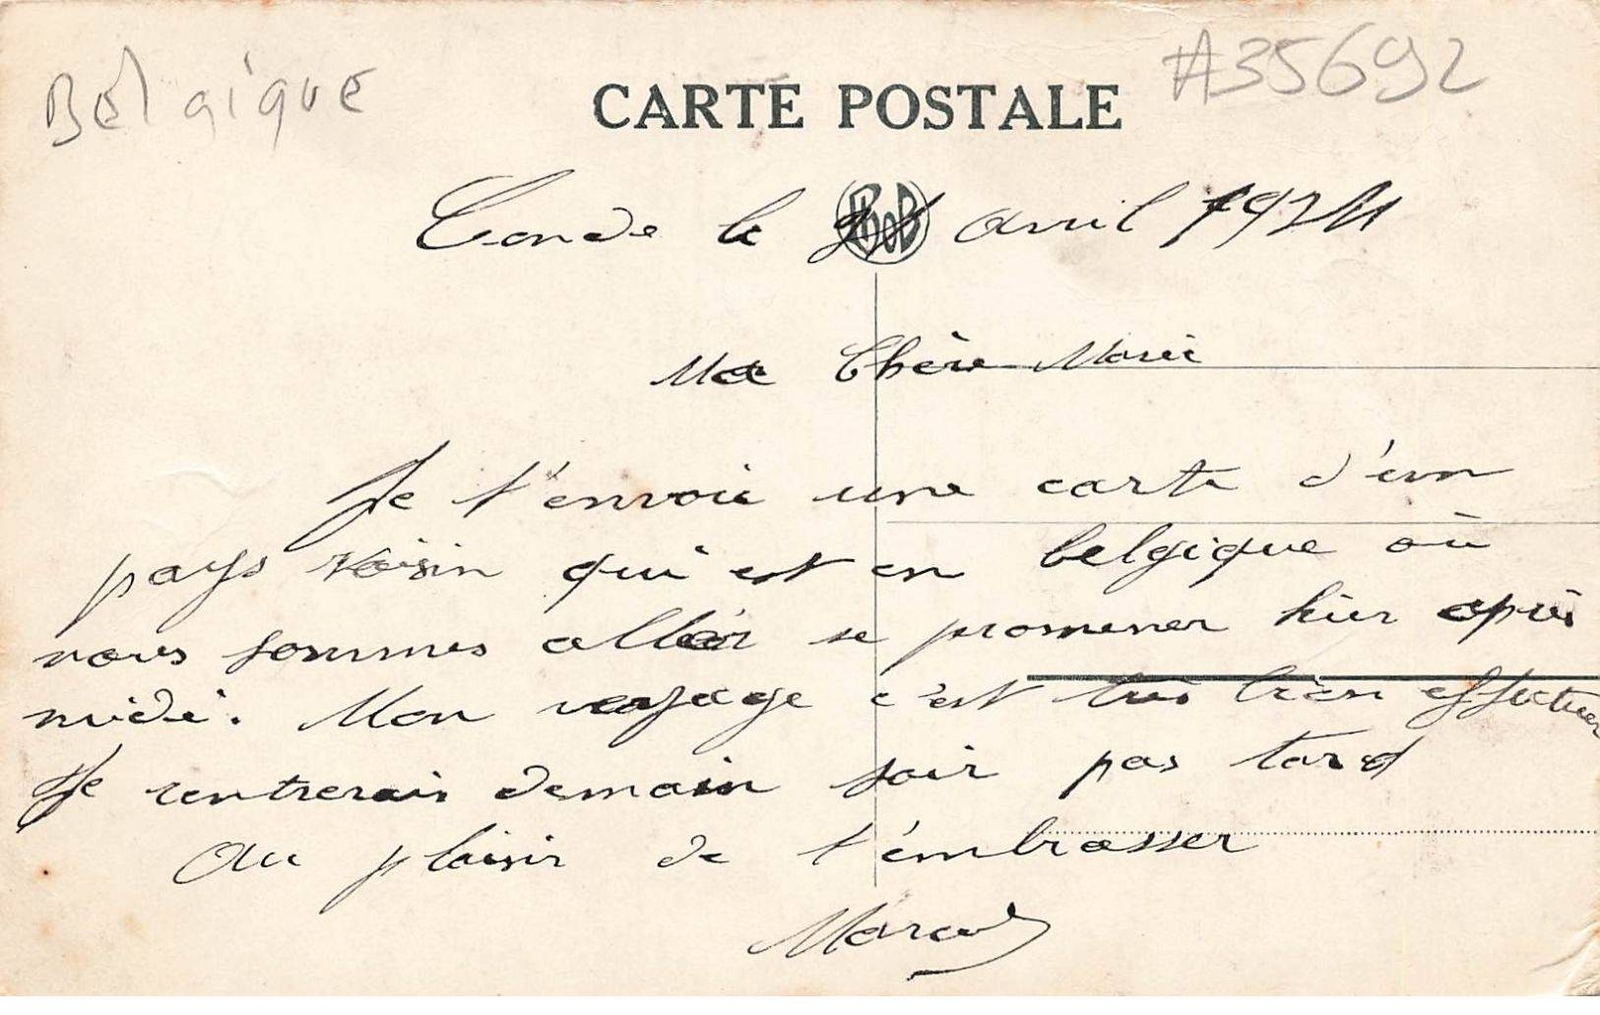 Belgique
#35692
CARTE POSTALE
Conde le avril
Ma Chère Marie
Je t'envoie une carte d'un
pays voisin qui est en belgique où
nous sommes aller se promener hier après
midi. Mon voyage c'est très bien effectuer
Je rentrerais demain soir pas tard
Au plaisir de t'émbrasser